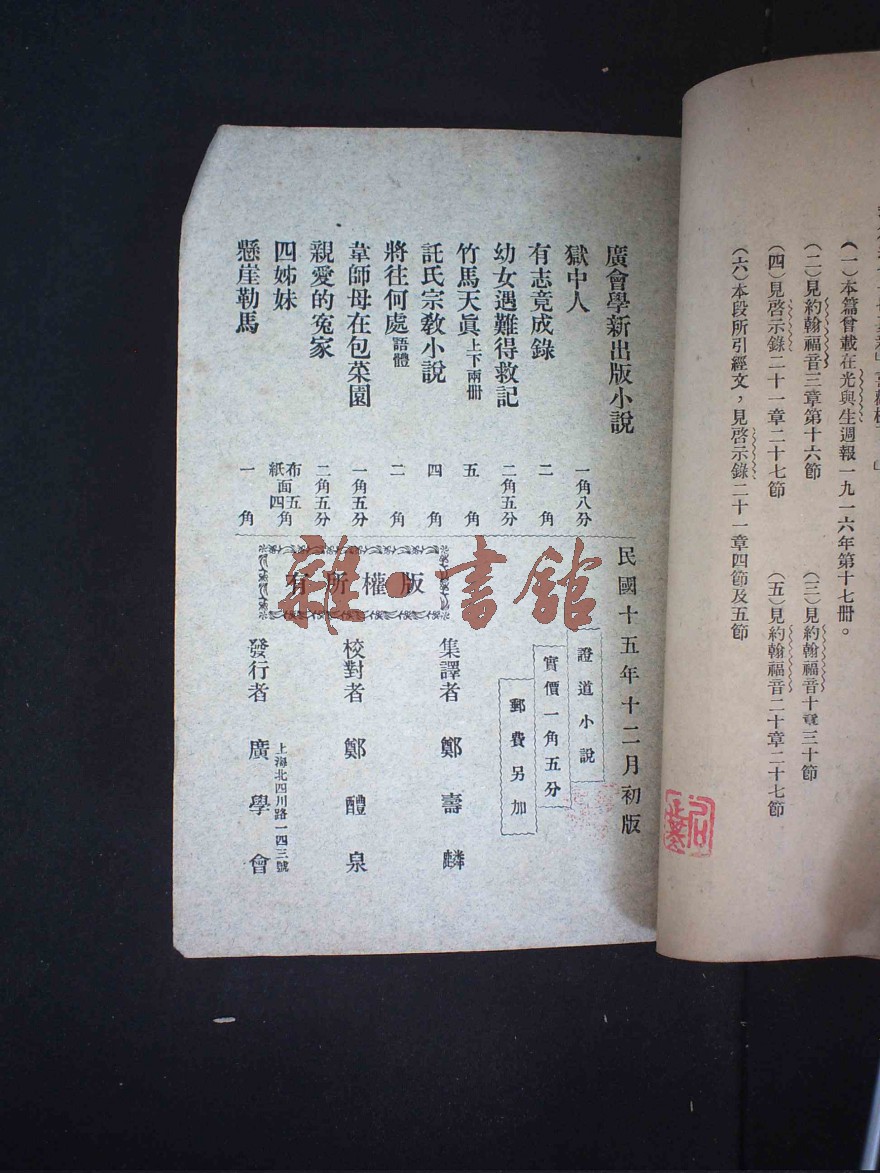 (一)本篇曾載在光與生週報一九一六年第十七册。
(二)見約翰福音三章第十六節
(三)見約翰福音十章三十節
(四)見啓示錄二十一章二十七節
(五)見約翰福音二十章二十七節
(六)本段所引經文,見啓示錄二十一章四節及五節
廣會學新出版小說
獄中人 一角八分
有志竟成錄 二角
幼女遇難得救記 二角五分
竹馬天眞上下兩册 五角
託氏宗敎小說 四角
將往何處語體 二角
韋師母在包菜園 一角五分
親愛的寃家 二角五分
四姊妹 布面五角 紙面四角
懸崖勒馬 一角
民國十五年十二月初版
證道小說
實價一角五分
郵費另加
版權所有
集譯者 鄭壽麟
校對者 鄭醴泉
發行者 廣學會
上海北四川路一四三號
雜·書館